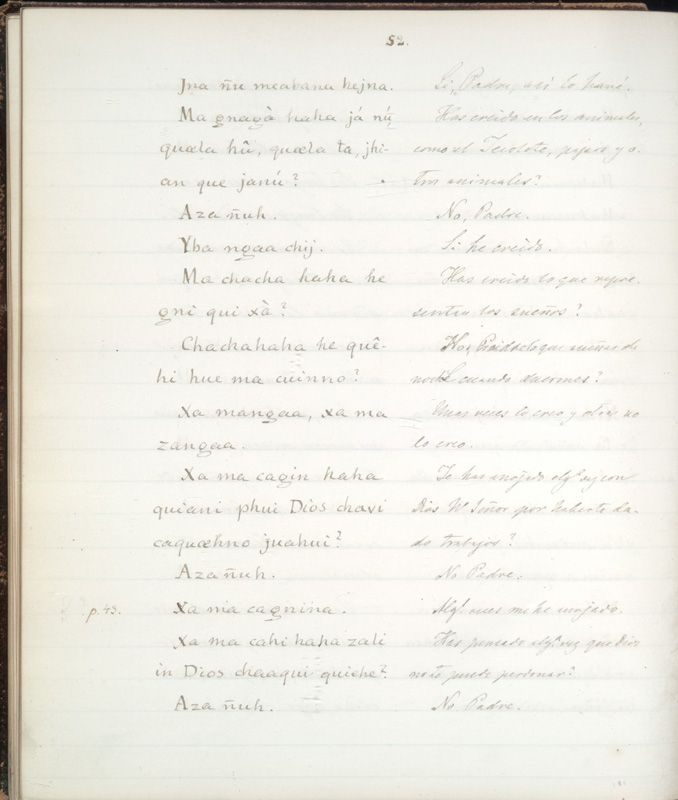 52.
Jna ñu meabanu hejna. Si, Padre, asi lo haré.
Ma gnagà haha já nú, Has creido en los animales,
quæla hû, quæla ta, jhi- como el Tecolote, pajaro y o-
an que janú? tros animales?
Aza ñuh. No, Padre.
Yba ngaa chij. Si he creido.
Ma chacha haha he Has creido lo que repre-
gni qui xà? sentan los sueños?
Chachahaha he quê- Has creido lo que sueñas de
hi hue ma cuinno? noche cuando duermes?
Xa mangaa, xa ma Unas veces lo creo y otras no
zangaa. lo creo.
Xa ma cagin haha Te has enojado algª vez con
quiani phui Dios chavi Dios Nº Señor por haberte da-
caquæhno juahui? do trabajos?
Aza ñuh. No Padre.
p. 43. Xa ma cagnina. Algª veces me he enojado.
Xa ma cahi haha zali Has pensado algª vez que Dios
in Dios chaaqui quiche? no te puede perdonar?
Aza ñuh. No Padre.